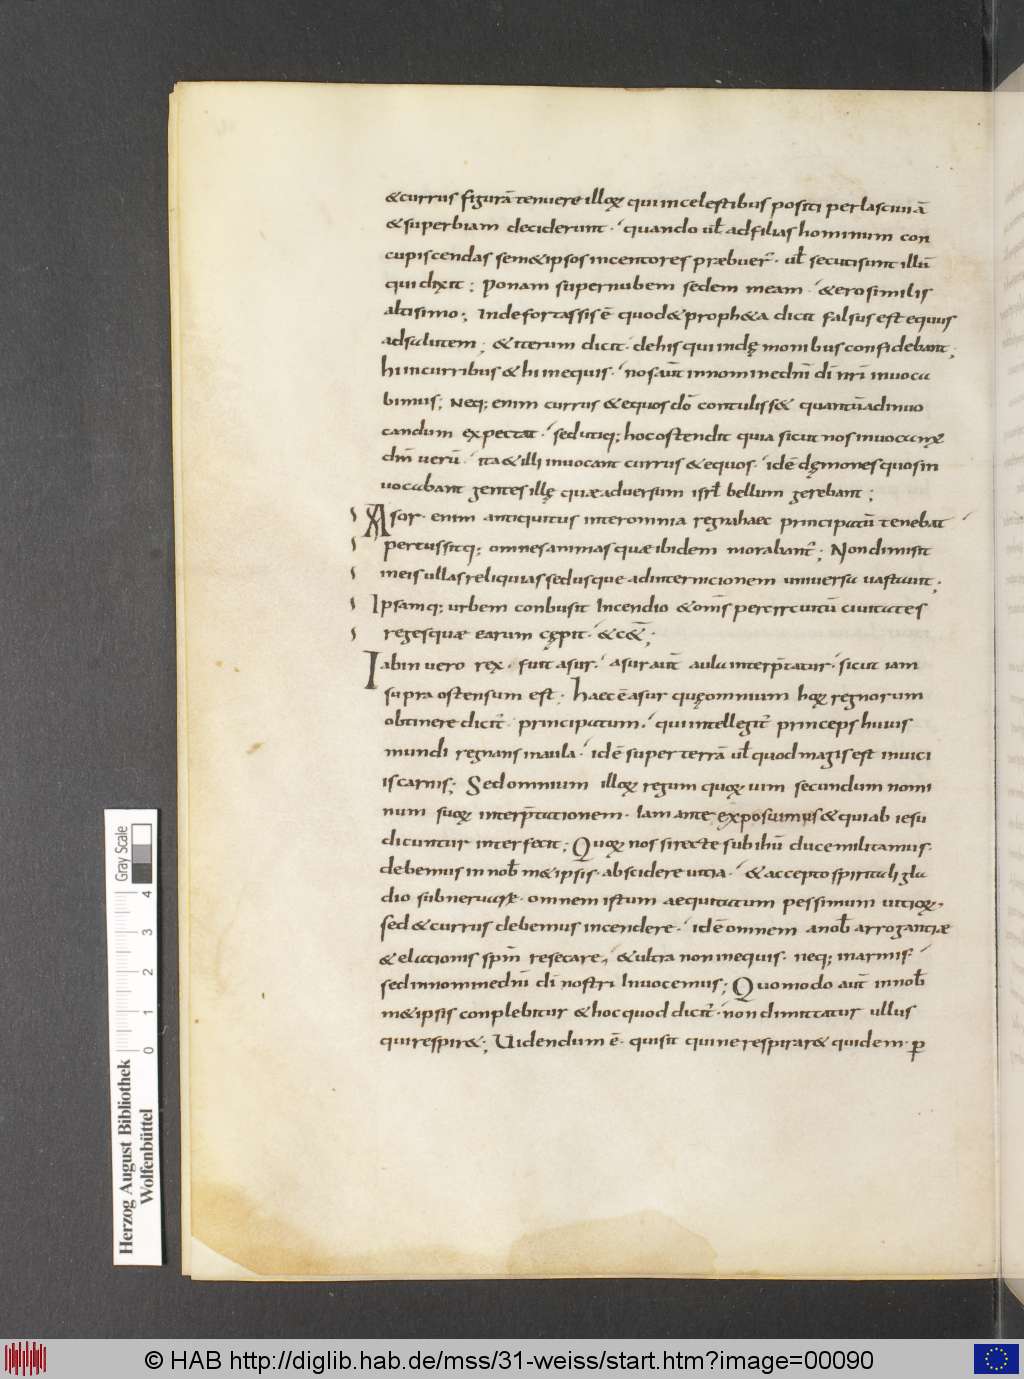 &currus figurā tenuere illoꝝ qui incelestibus positi per lasciuiā
&superbiam deciderunt · quando uł adfilias hominum con
cupiscendas sem&ipsos incentores præbuer̄ · uł secuti sunt illū
qui dixit ; Ponam super nubem sedem meam · &ero similis
altisimo ; Inde fortassis ē quod &proph&a dicit falsus est equus
adsalutem ; &iterum dicit · dehis qui indęmonibus confidebant ;
hi incurribus &hi inequis · nos aūt innomine dnī dī nrī inuoca
bimus ; Neq; enim currus &equos dō contuliss& quantū adinuo
candum expectat · sed utiq; hoc ostendit quia sicut nos inuocamꝰ
dm̄ uerū · ita &illi inuocant currus &equos · idē dęmones quos in
uocabant gentes illę quæ aduersum isrł bellum gerebant ;
Asor · enim antiquitus inter omnia regna haec principatū tenebat
percussitq; omnes animas quæ ibidem morabant̄ ; Non dimisit
ineis ullas reliquias sed usque adinternicionem uniuersa uastauit ·
Ipsamq; urbem conbusit Incendio &om̄s per circuitū ciuitates
reges quæ earum cępit · &c&̄ ;
Iabin uero rex · fuit asur · asur aūt aula interp̄tatur · sicut iam
supra ostensum est · haec ē asur quę omnium hoꝝ regnorum
obtinere dicit̄ principatum · qui intellegit̄ princeps huius
mundi regnans inaula · idē super terrā uł quod magis est inuici
is carnis ; Sed omnium illoꝝ regum quoꝝ uim secundum nomi
num suoꝝ interp̄tationem · Iam ante exposuimus &quia b iesu
dicuntur interfecit ; Quoꝝ nos si recte sub ihū duce militamus ·
debemus in nob̄ m&ipsis · abscidere uitia · &accepto spiritali gla
dio subneruare · omnem istum aequitatum pessimum uitioꝝ ·
sed &currus debemus incendere · idē omnem anob̄ arrogantiæ
&elationis spm̄ resecare · &ultra non inequis · neq; inarmis ·
sed innomine dnī dī nostri Inuocemus ; Quomodo aūt innob̄
m&ipsis conplebitur &hoc quod dicit̄ · non dimittatur ullus
qui respir& ; Uidendum ē · quisit qui ne respirar& quidem · ꝑ
Gray Scale
0 1 2 3 4
Herzog August Bibliothek
Wolfenbüttel
© HAB http://diglib.hab.de/mss/31-weiss/start.htm?image=00090